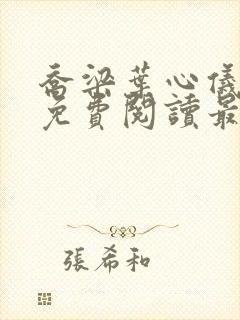 喬梁葉心儀
免費閱讀最
張希和